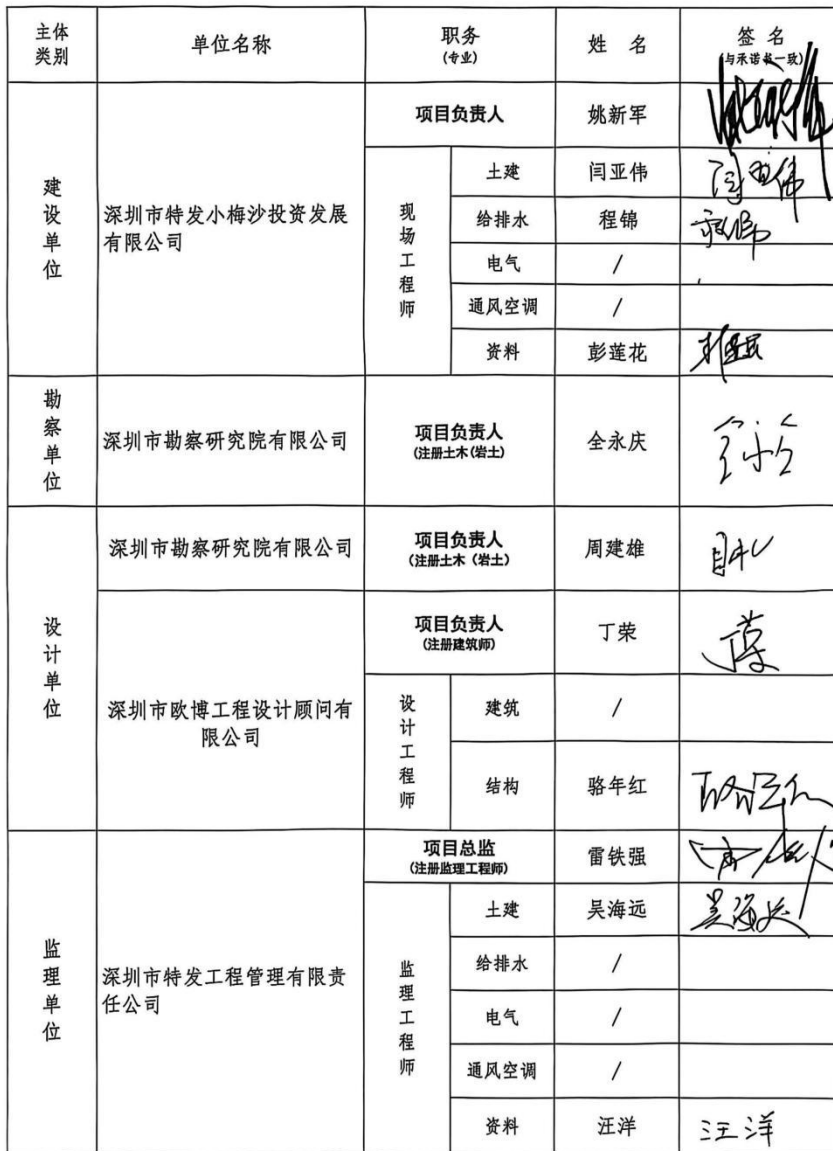 主体类别 单位名称 职务(专业) 姓 名 签 名(与承诺书一致)
建设单位 深圳市特发小梅沙投资发展有限公司 项目负责人 姚新军
现场工程师 土建 闫亚伟 闫亚伟
给排水 程锦
电气 /
通风空调 /
资料 彭莲花
勘察单位 深圳市勘察研究院有限公司 项目负责人(注册土木(岩土) 全永庆
设计单位 深圳市勘察研究院有限公司 项目负责人(注册土木(岩土) 周建雄
深圳市欧博工程设计顾问有限公司 项目负责人(注册建筑师) 丁荣
设计工程师 建筑 /
结构 骆年红
监理单位 深圳市特发工程管理有限责任公司 项目总监(注册监理工程师) 雷铁强
监理工程师 土建 吴海远 吴海远
给排水 /
电气 /
通风空调 /
资料 汪洋 汪洋